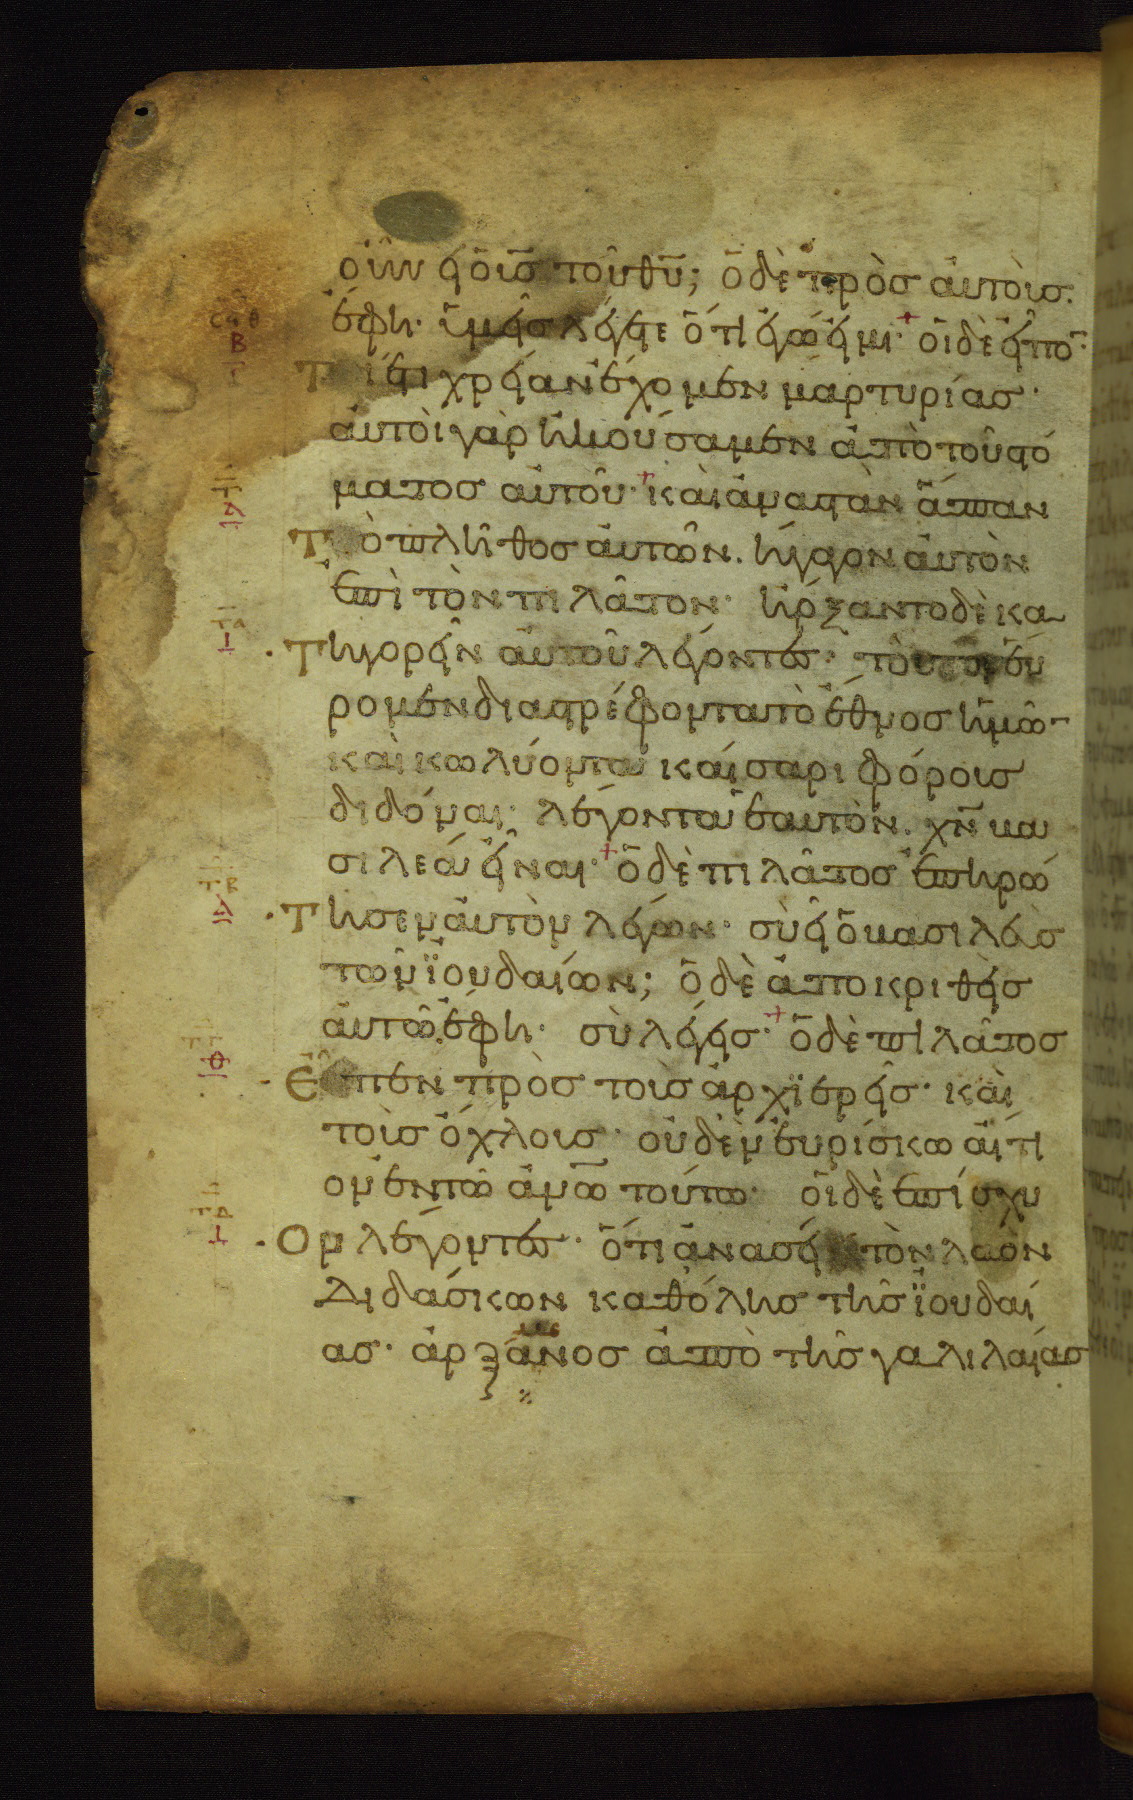 οὖν εἶ ὁ ῡσ̄ τοῦ θῡ; ὁ δὲ πρὸσ αὐτοὺσ.
ἔφη· ὑμεῖσ λέγετε ὅτι ἐγώ εἰμι· + οἱ δὲ εἶπο̄·
Τί ἔτι χρείαν ἔχομεν μαρτυρίασ·
αὐτοὶ γὰρ ἠκούσαμεν ἀπὸ τοῦ στό
ματοσ αὐτοῦ· + καὶ ἀναστὰν ἅπαν
Τὸ πλῆθοσ αὐτῶν. ἤγαγον αὐτὸν
ἐπὶ τὸν πιλᾶτον· ἤρξαντο δὲ κα
Τηγορεῖν αὐτοῦ λέγοντεσ· τοῦτον εὕ
ρομεν διαστρέφοντα τὸ ἔθνοσ ἡμῶ̄
καὶ κωλύοντα καίσαρι φόρουσ
διδόναι· λέγοντα ἑαυτὸν. χν̄ βα
σιλέα εἶναι· + ὁ δὲ πιλᾶτοσ ἐπηρώ
Τησεν αὐτὸν λέγων· σὺ εἶ ὁ βασιλεὺσ
τῶν ϊουδαίων; ὁ δὲ ἀποκριθεὶσ
αὐτῶ ἔφη· σὺ λέγεισ· + ὁ δὲ πιλᾶτοσ
Εἶπεν πρὸσ τοὺσ ἀρχϊερεῖσ· καὶ
τοὺσ ὄχλουσ· οὐδὲν εὑρίσκω αἴτι
ον ἐν τῶ ἀν̄ω τούτω· οἱ δὲ ἐπίσχυ
Ον λέγοντεσ· ὅτι ἀνασείει τὸν λαὸν
Διδάσκων καθ' ὅλησ τῆσ ϊουδαί
ασ· ἀρξάμενοσ ἀπὸ τῆσ γαλιλαίασ
σϟθ
Β
Τ
Δ
ΤΑ
Ι
ΤΒ
Δ
ΤΓ
Θ
ΤΔ
Ι